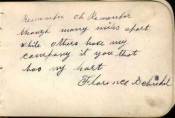 Remember oh Remember
though many miles apart
while others have my
company it you that
has my hart
Florence